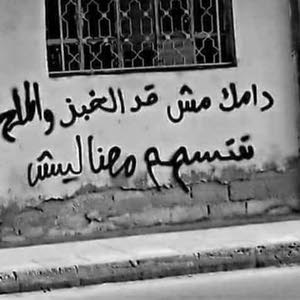 دامك مش قد الخبز والملح
تقتسمهم معنا ليش